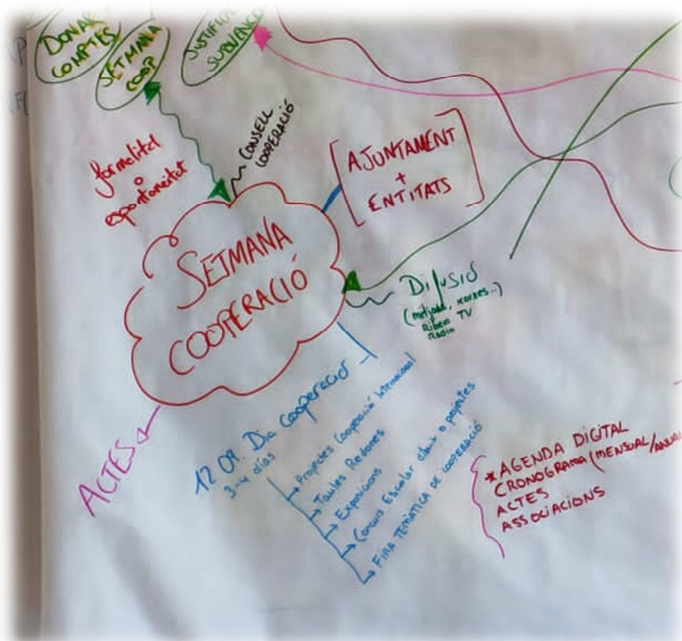 DONAR
COMPTES
SETMANA
COOP
JUSTIFICA
SUBVENCIÓ
formalitat
o
espontaneitat
CONSELL
COOPERACIÓ
[AJUNTAMENT
+
ENTITATS]
SETMANA
COOPERACIÓ
DIFUSIÓ
(mitjans, xarxes..)
Ribera TV
RADIO
ACTES
12 09. Dia Cooperació
3-4 días
Projectes Cooperació Internacional
Taules Redones
Exposicions
Concurs Escolar dibuix o projectes
FIRA TEMÀTICA DE COOPERACIÓ
* AGENDA DIGITAL
CRONOGRAMA (MENSUAL/ANUAL
ACTES
ASSOCIACIONS